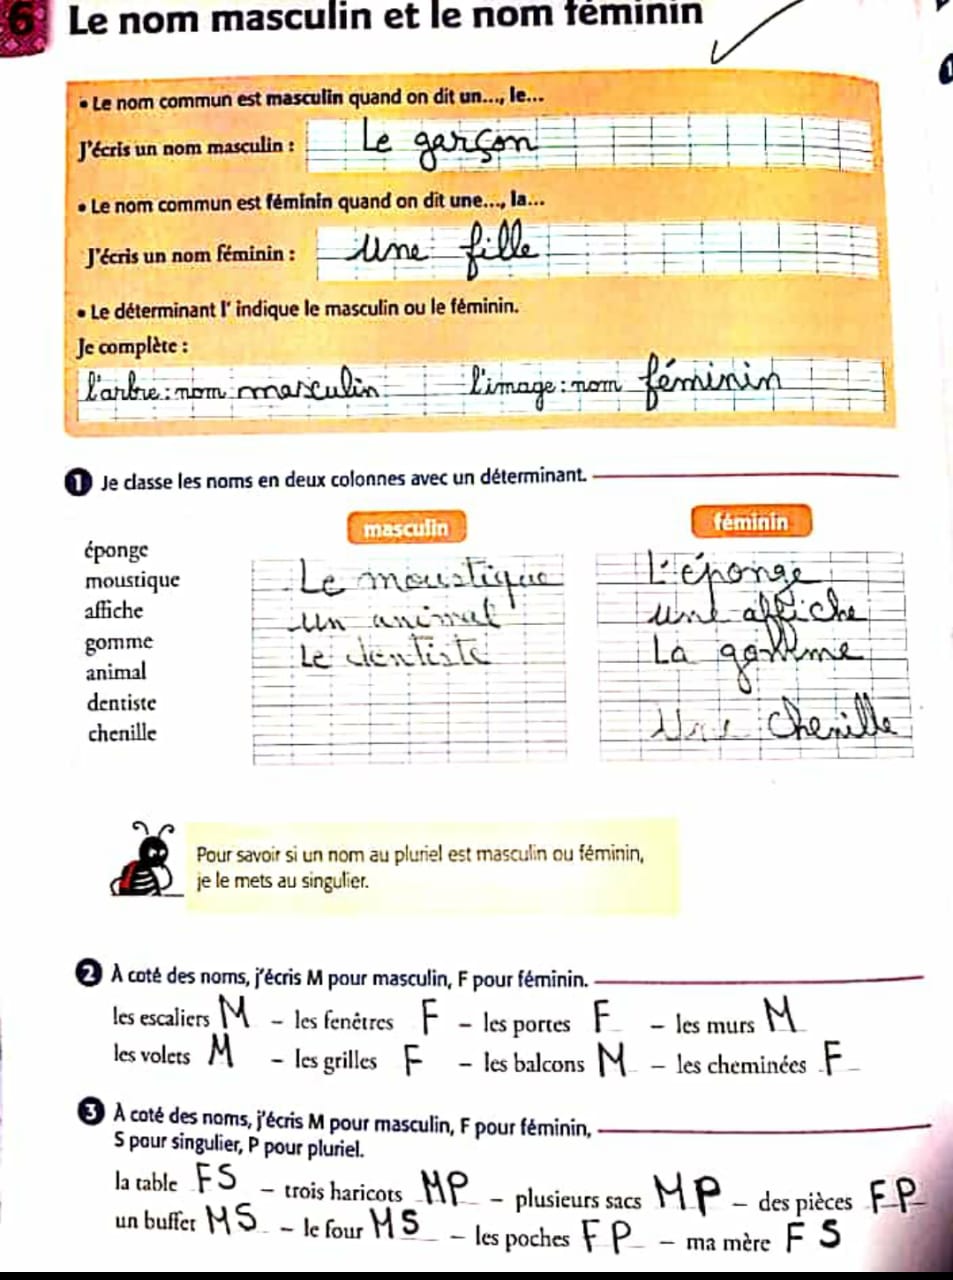 6 Le nom masculin et le nom féminin
• Le nom commun est masculin quand on dit un..., le...
J'écris un nom masculin : Le garçon
• Le nom commun est féminin quand on dit une..., la...
J'écris un nom féminin : une fille
• Le déterminant l' indique le masculin ou le féminin.
Je complète :
l'arbre : nom masculin l'image : nom féminin
1 Je classe les noms en deux colonnes avec un déterminant.
masculin féminin
éponge
moustique
affiche
gomme
animal
dentiste
chenille
Le moustique
un animal
Le dentiste
L'éponge
une affiche
La gomme
Une chenille
Pour savoir si un nom au pluriel est masculin ou féminin,
je le mets au singulier.
2 À coté des noms, j'écris M pour masculin, F pour féminin.
les escaliers M – les fenêtres F – les portes F – les murs M
les volets M – les grilles F – les balcons M – les cheminées F
3 À coté des noms, j'écris M pour masculin, F pour féminin,
S pour singulier, P pour pluriel.
la table F S – trois haricots MP – plusieurs sacs MP – des pièces F P
un buffet M S – le four M S – les poches F P – ma mère F S